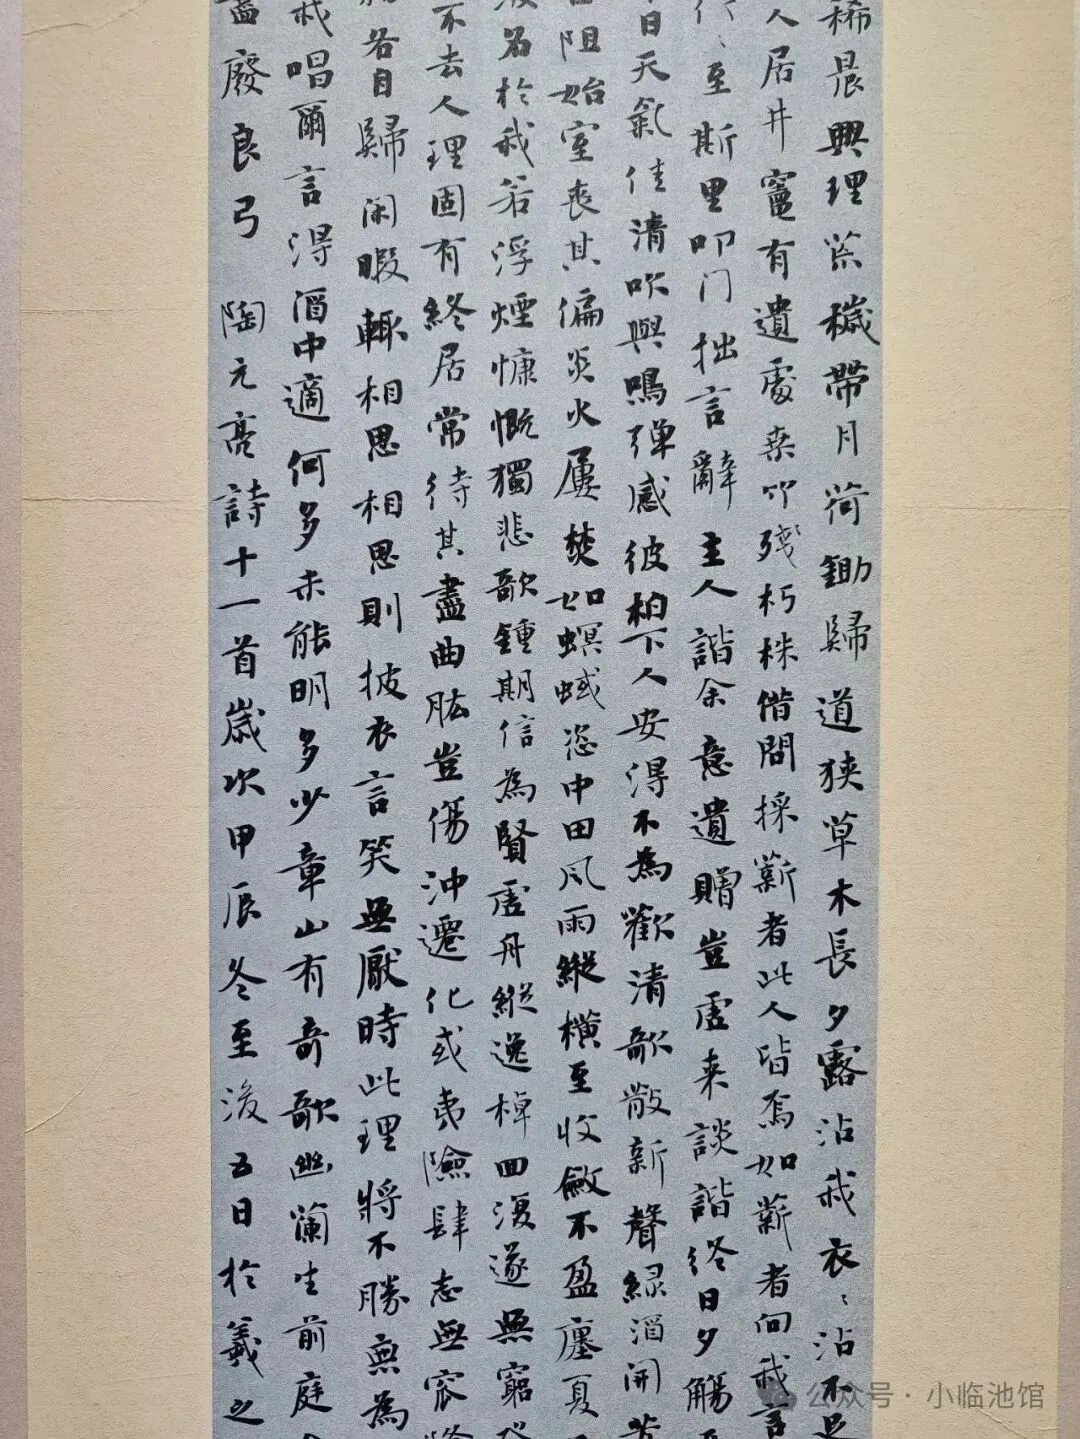 稀晨興理荒穢帶月荷鋤歸道狹草木長夕露沾我衣〻沾不足
人居井竈有遺處桑竹殘朽株借問採薪者此人皆焉如薪者向我言
行〻至斯里叩门拙言辭主人諧余意遺贈豈虛来談諧终日夕觴至
日天氣佳清吹與鳴弹感彼柏下人安得不為歡清歌散新聲緑酒開芳
阻始室丧其偏炎火屢焚如螟蜮恣中田风雨縱橫至收斂不盈廛夏
後名於我若浮煙慷慨獨悲歌鍾期信為賢虛舟縱逸棹回復遂無窮發
不去人理固有終居常待其盡曲肱豈傷沖遷化或夷險肆志無窊隆
各自歸闲暇輒相思相思則披衣言笑無厭時此理將不勝無為
我唱爾言得酒中適何多未能明多少章山有奇歌幽蘭生前庭
盡廢良弓 陶元亮詩十一首歲次甲辰冬至後五日於羲之
公众号·小临池馆